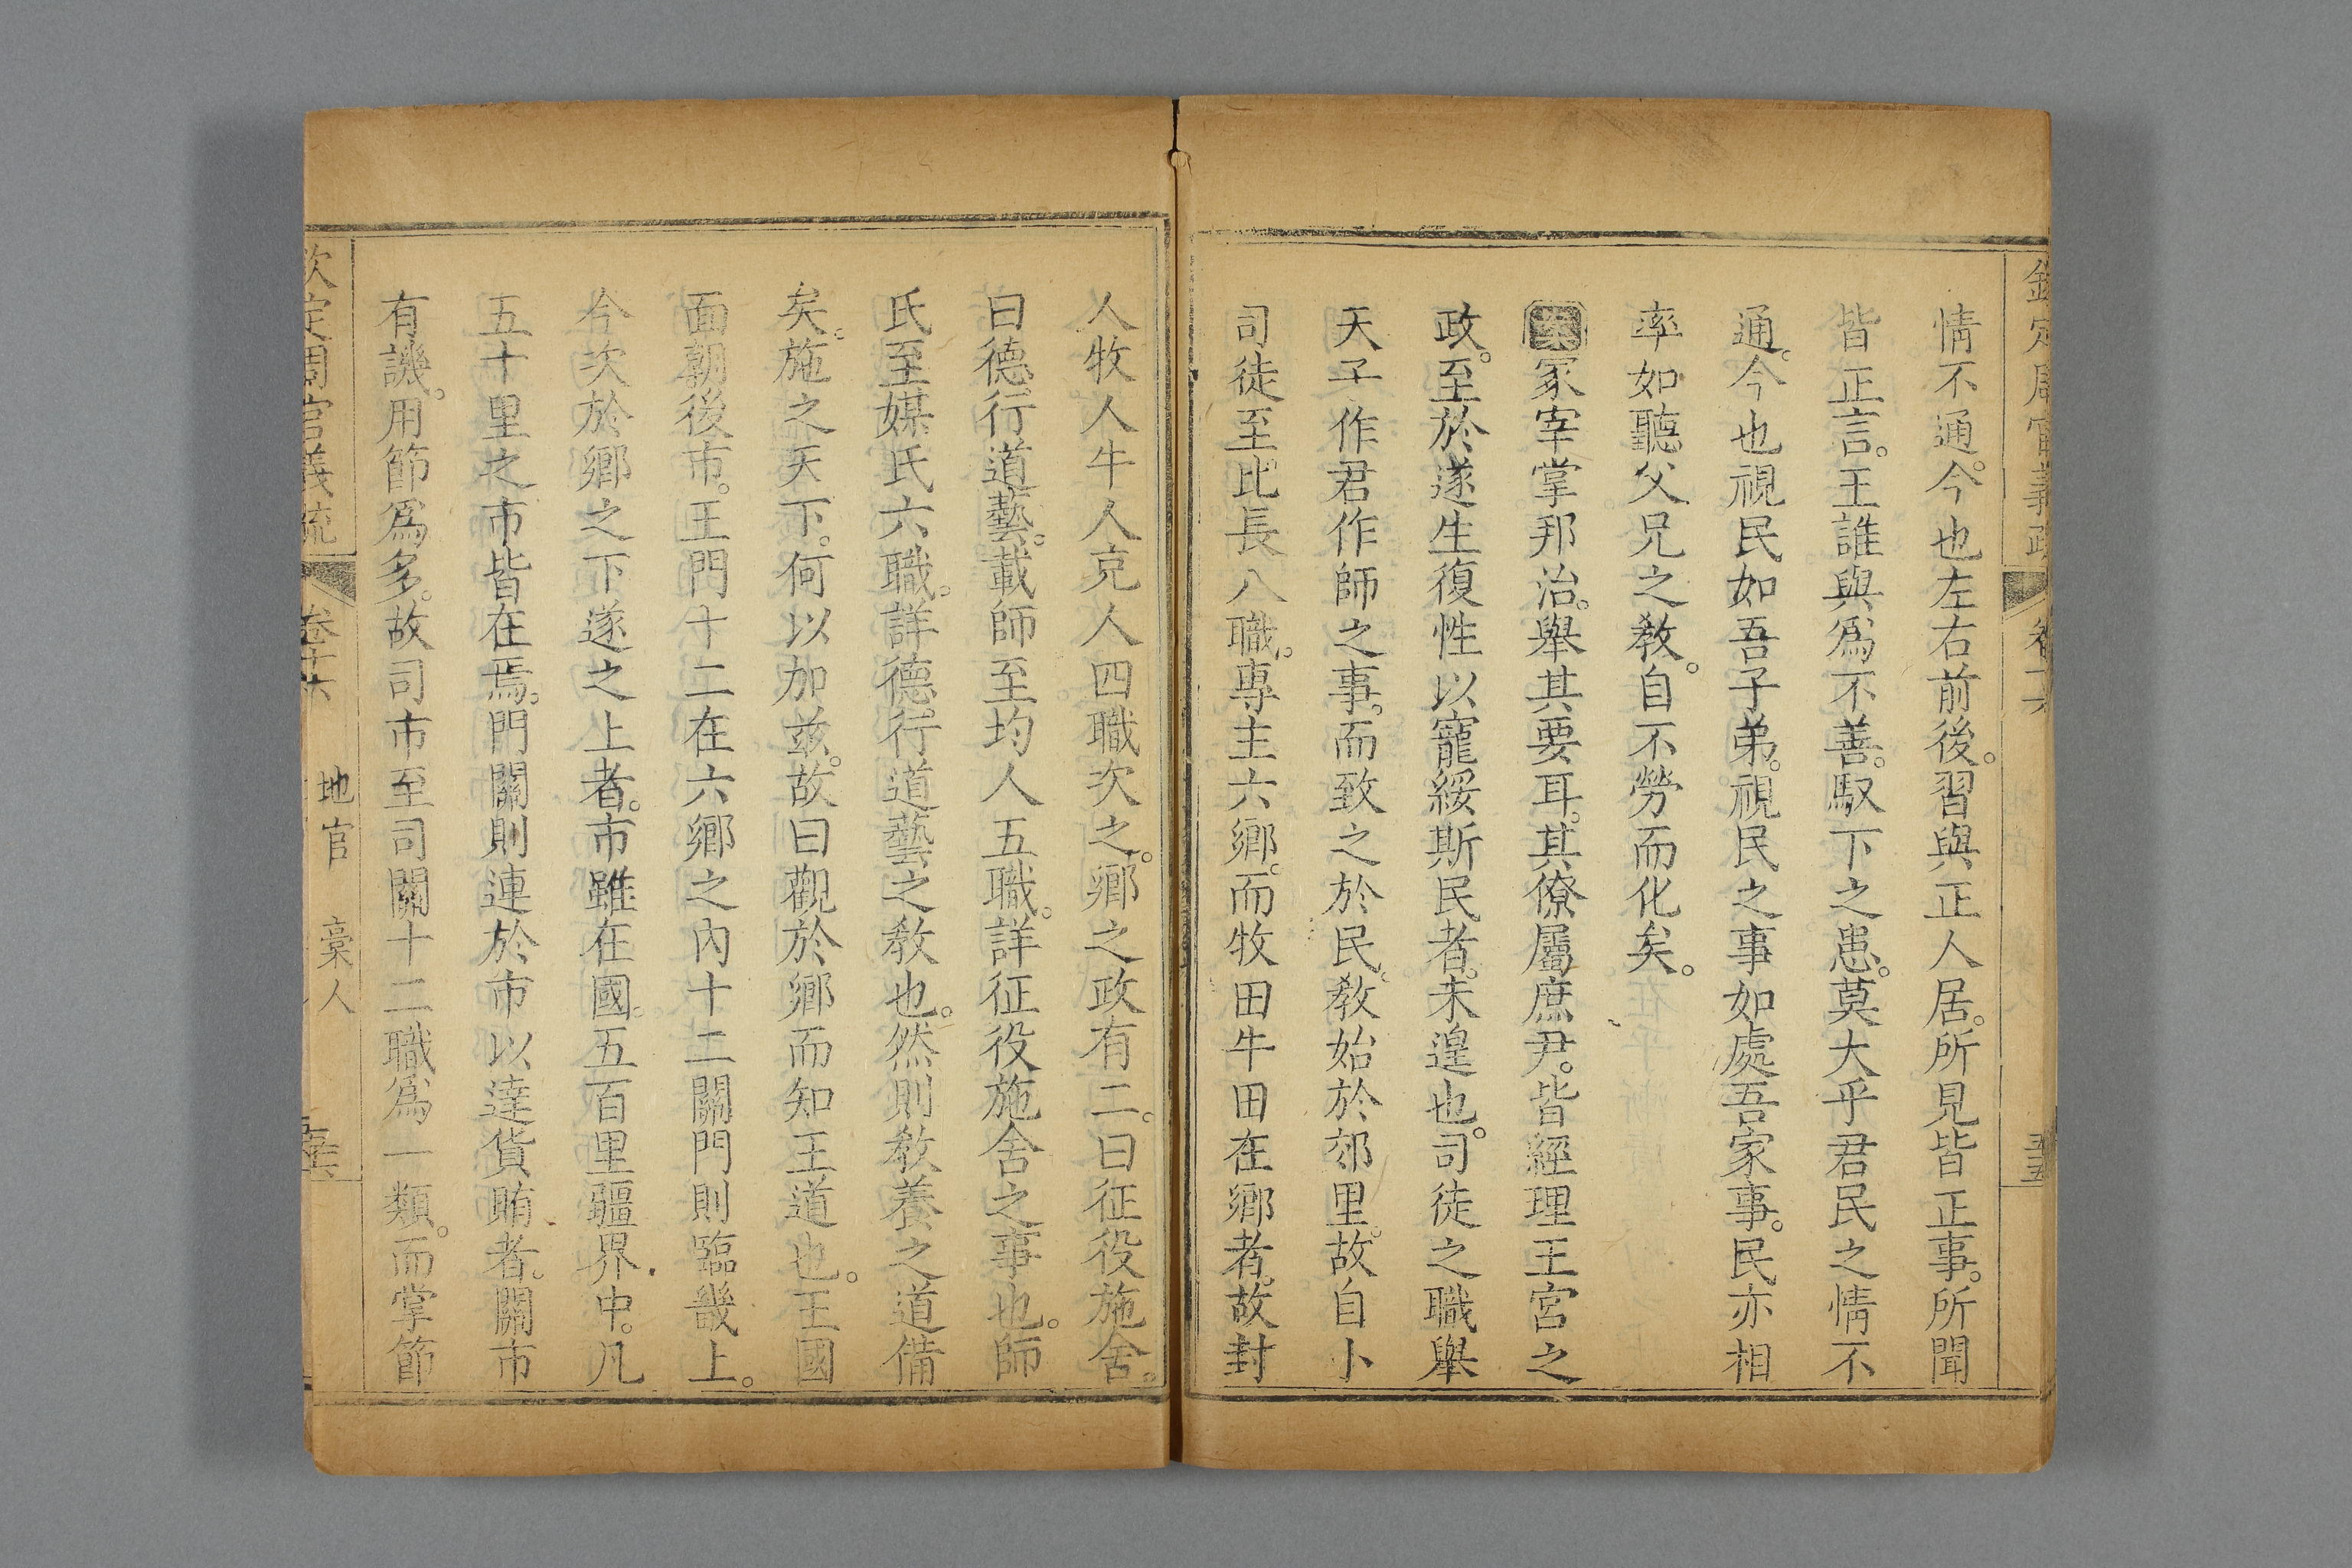 欽定周官義疏 卷十六
情不通。今也左右前後。習與正人居。所見皆正事。所聞
皆正言。王誰與爲不善。馭下之患。莫大乎君民之情不
通。今也視民如吾子弟。視民之事如處吾家事。民亦相
率如聽父兄之敎。自不勞而化矣。
案冢宰掌邦治。舉其要耳。其僚屬庶尹。皆經理王宮之
政。至於遂生復性以寵綏斯民者。未遑也。司徒之職舉
天子作君作師之事。而致之於民。敎始於郊里。故自卜
司徒至比長八職。專主六鄉。而牧田牛田在鄉者。故封
人牧人牛人充人四職次之。鄉之政有二。曰征役施舍。
曰德行道藝。載師至均人五職。詳征役施舍之事也。師
氏至媒氏六職。詳德行道藝之敎也。然則敎養之道備
矣。施之天下。何以加茲。故曰觀於鄉而知王道也。王國
面朝後市。王門十二在六鄉之內十二關門則臨畿上。
今次於鄉之下遂之上者。市雖在國。五百里疆界中。凡
五十里之市皆在焉。門關則連於市以達貨賄者。關市
有譏。用節爲多。故司市至司關十二職爲一類。而掌節
欽定周官義疏 卷十六 地官 稾人